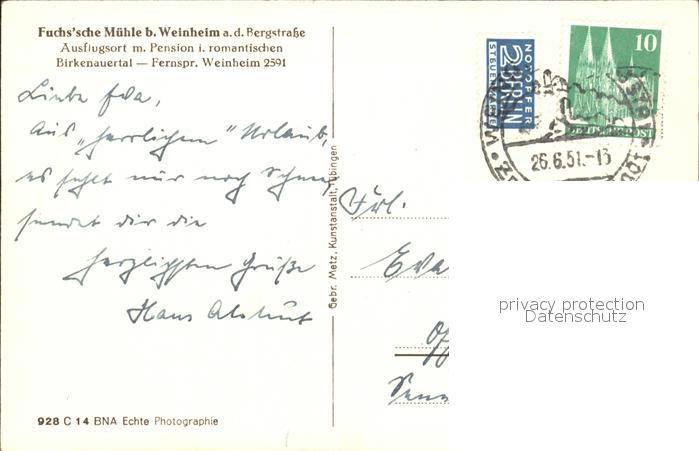 Fuchs'sche Mühle b. Weinheim a. d. Bergstraße
Ausflugsort m. Pension i. romantischen
Birkenauertal — Fernspr. Weinheim 2591
Liebe Eva,
Aus „herrlichem" Urlaub,
es fehlt nur noch Schnee,
sendet dir die
herzlichsten Grüße
Hans
928 C 14 BNA Echte Photographie
Gebr. Metz, Kunstanstalt, Tübingen
NOTOPFER
2 BERLIN
STEUERMARKE
10
DEUTSCHE POST
26.6.51.-13
Frl.
Eva
privacy protection
Datenschutz